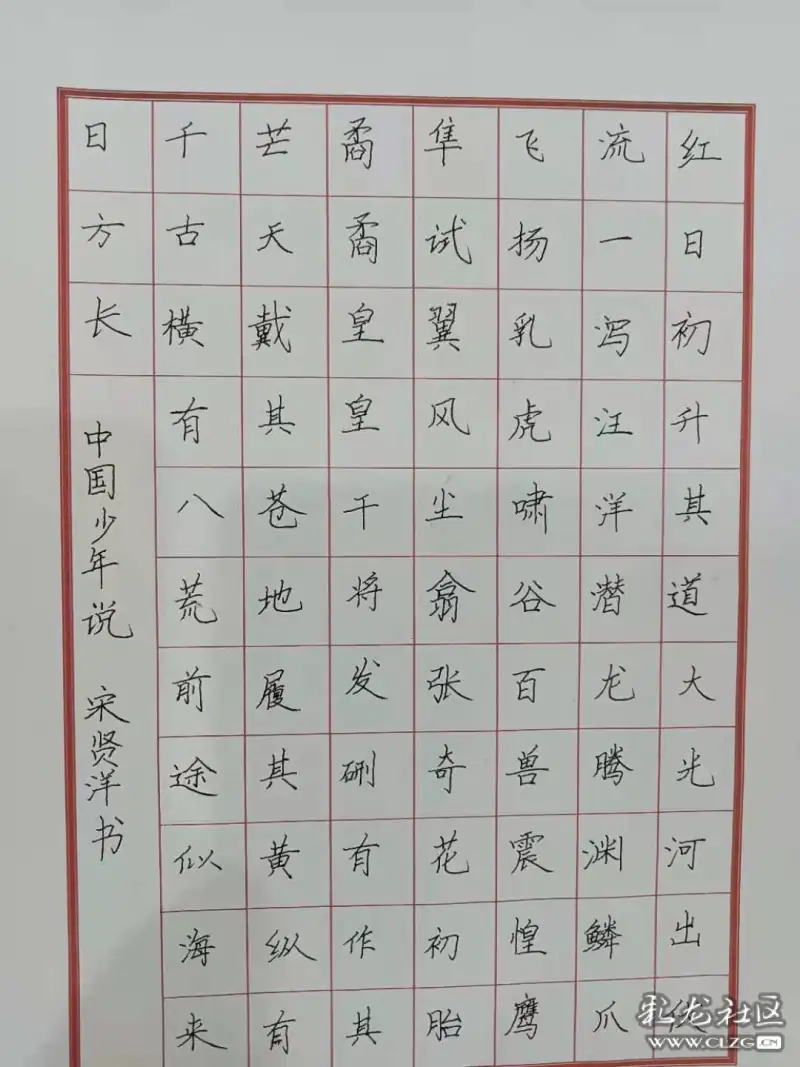 红日初升其道大光河出伏
流一泻汪洋潜龙腾渊鳞爪
飞扬乳虎啸谷百兽震惶鹰
隼试翼风尘翕张奇花初胎
矞矞皇皇干将发硎有作其
芒天戴其苍地履其黄纵有
千古横有八荒前途似海来
日方长
中国少年说 宋贤洋书
彩龙社区
WWW.CLZG.CN